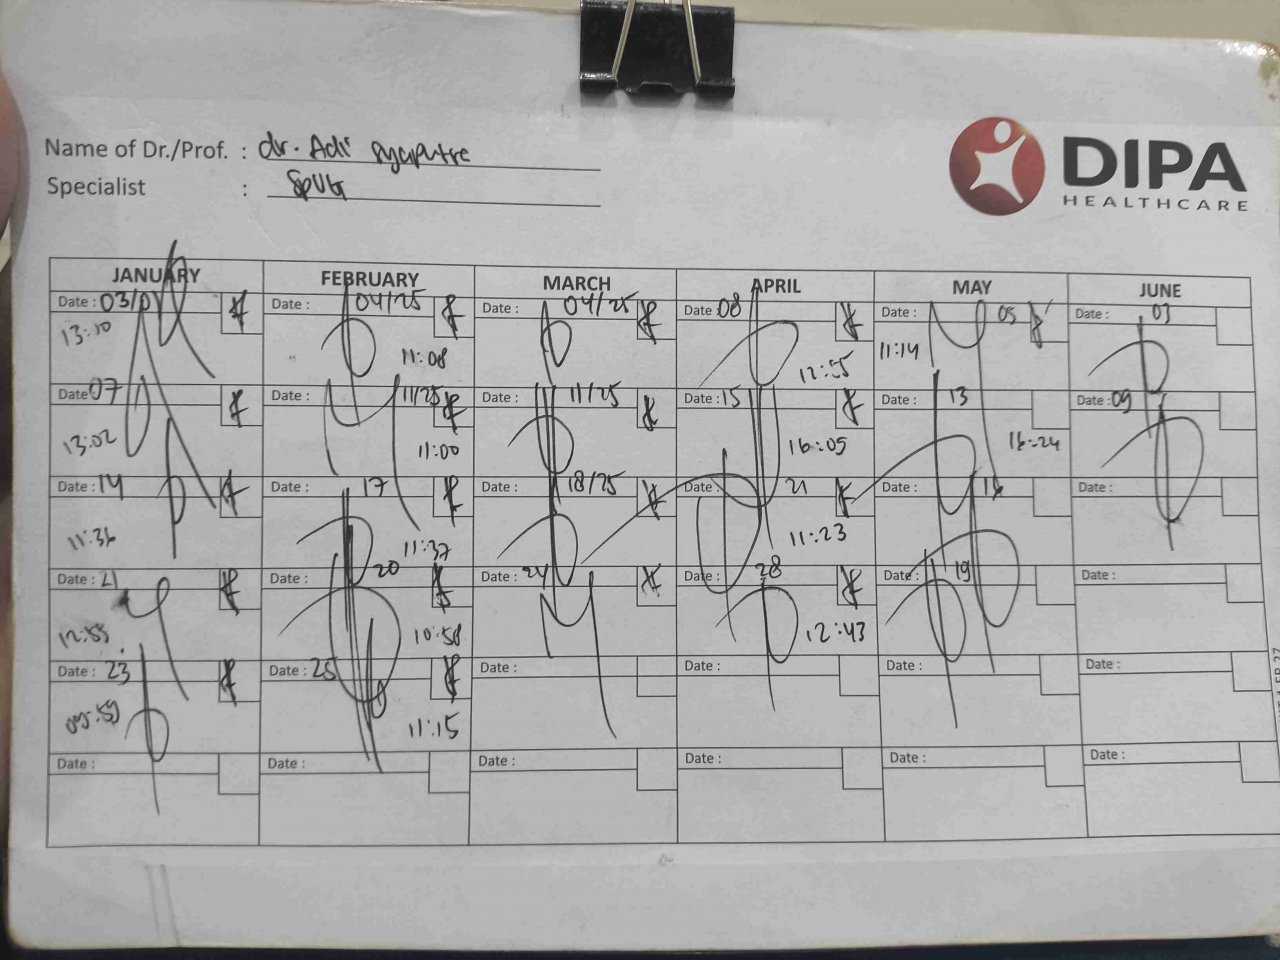 DIPA
HEALTHCARE
Name of Dr./Prof. : dr. Adi Syaputra
Specialist :
JANUARY FEBRUARY MARCH APRIL MAY JUNE
Date : 03/01 Date : 04/25 Date : 04/25 Date : 08 Date : 05 Date : 03
13:10 11:08 12:55 11:14
Date 07 Date : 11/25 Date : 11/25 Date : 15 Date : 13 Date : 09
13:02 11:00 16:05 16:24
Date : 14 Date : 17 Date : 18/25 Date : 21 Date : Date :
11:36 11:37 11:23
Date : 21 Date : 20 Date : 24 Date : 28 Date : 19 Date :
12:55 10:58 12:43
Date : 23 Date : 25 Date : Date : Date : Date :
09:59 11:15
Date : Date : Date : Date : Date : Date :